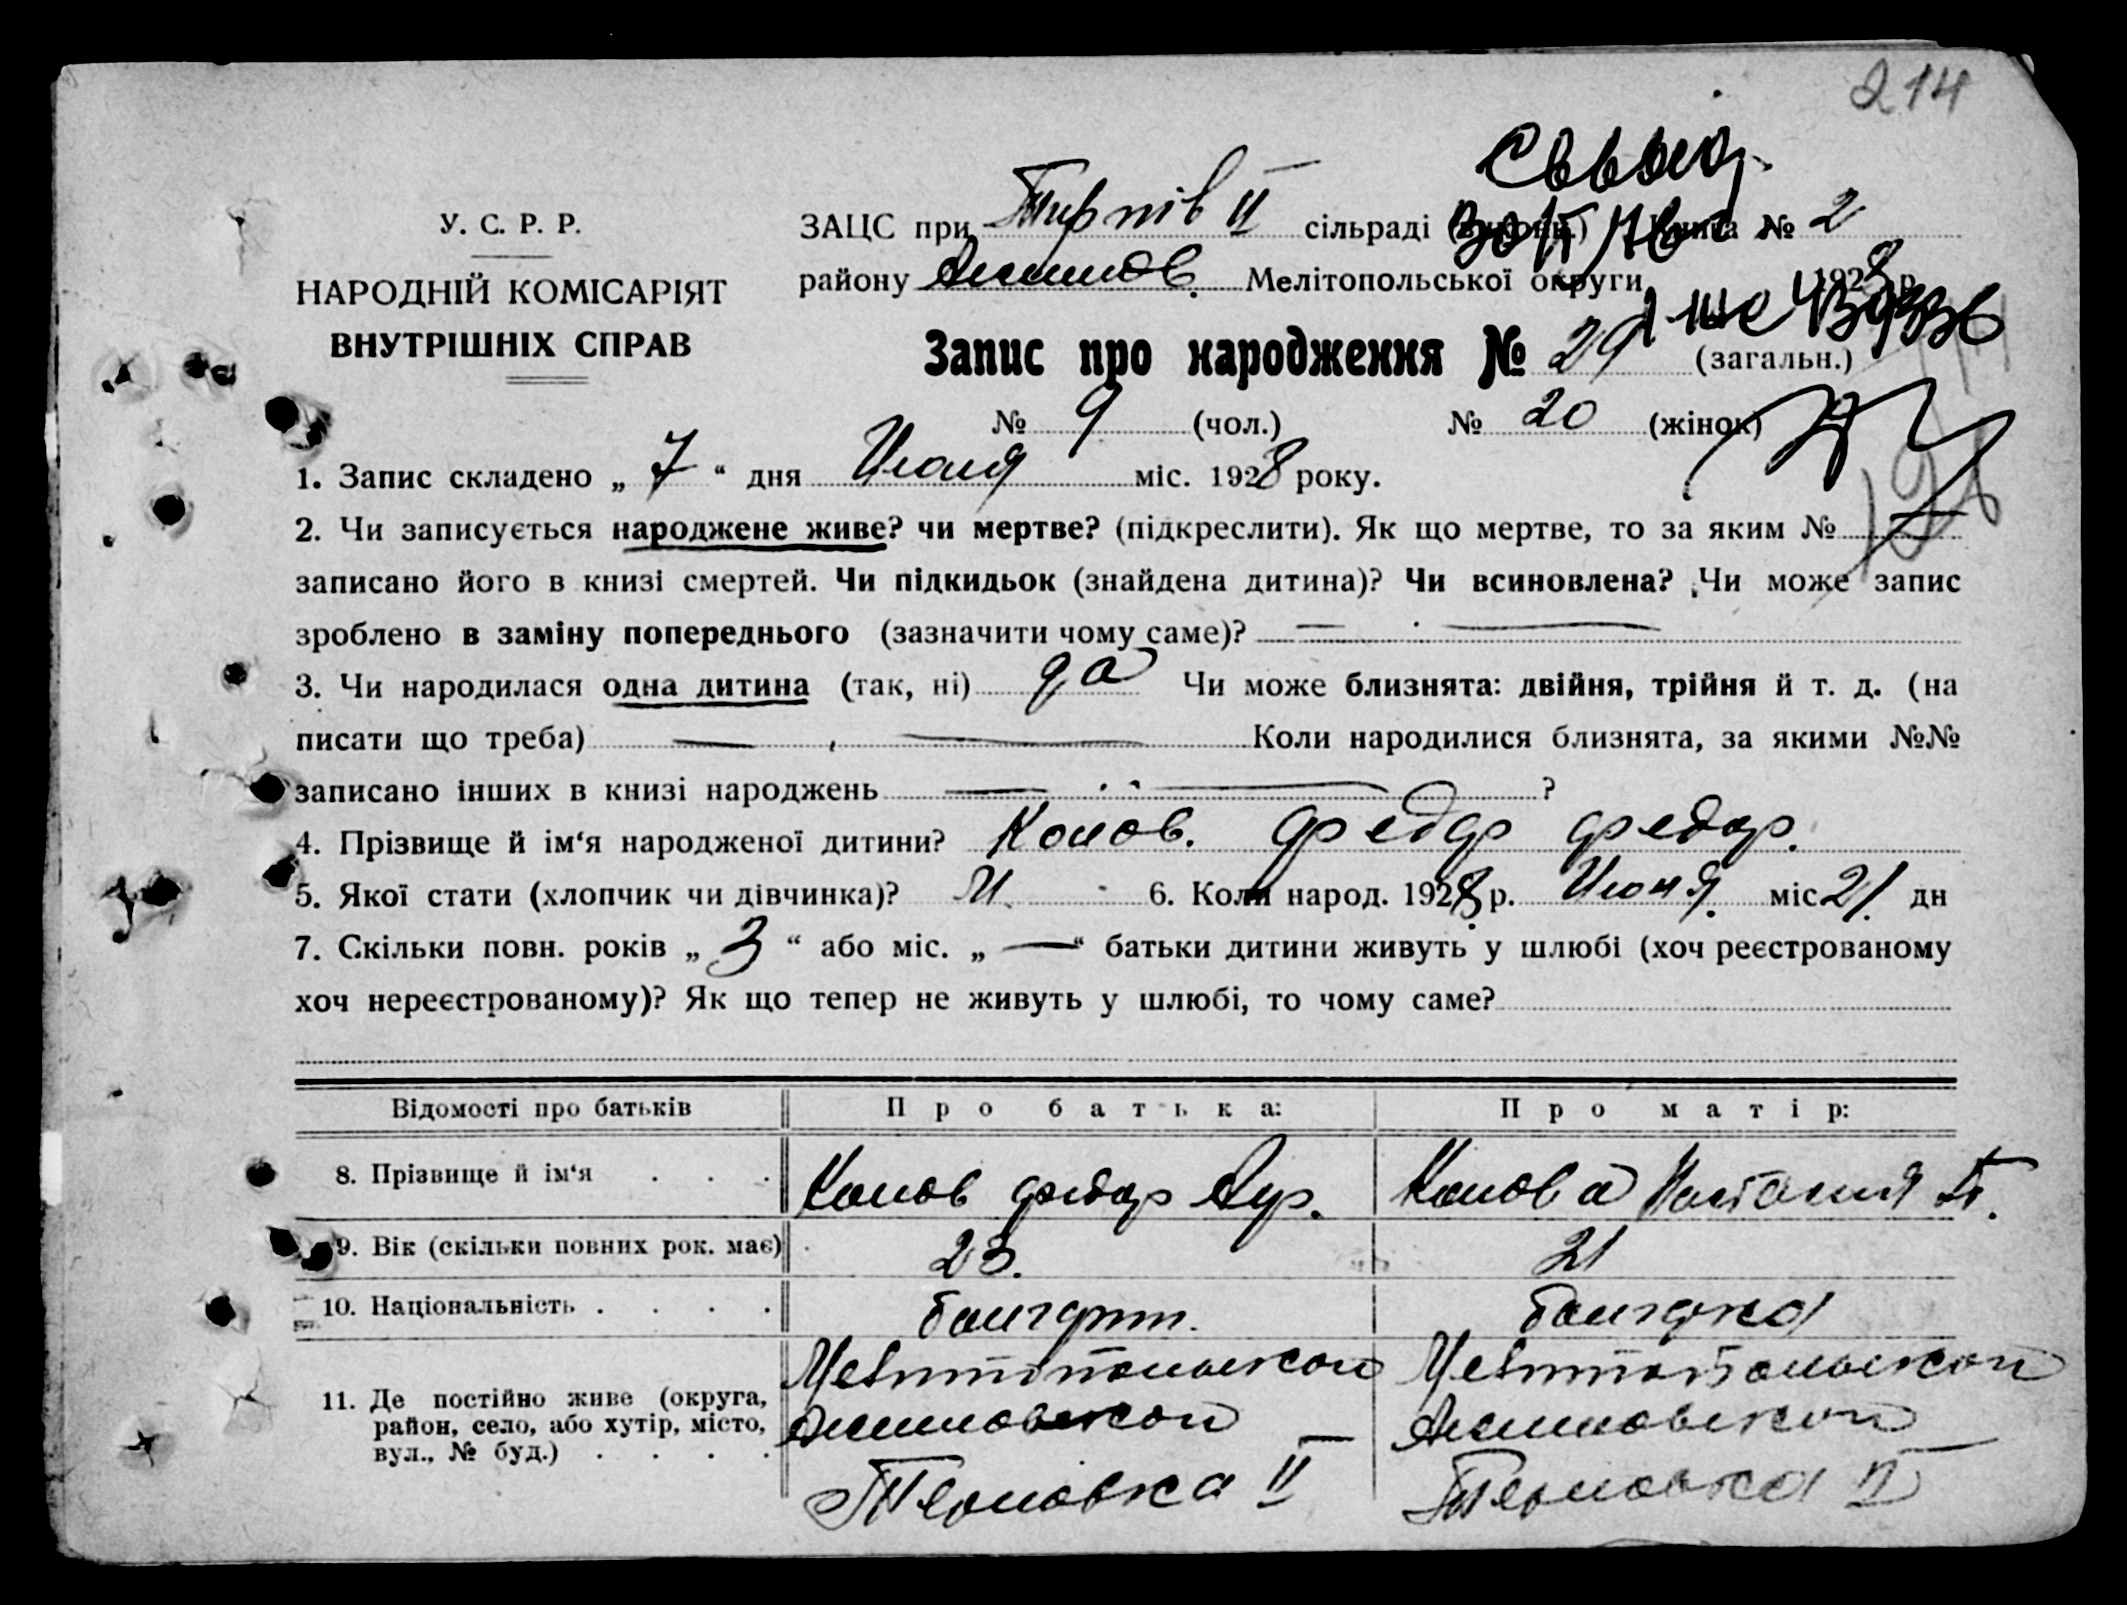 214
У. С. Р. Р.
НАРОДНІЙ КОМІСАРІЯТ
ВНУТРІШНІХ СПРАВ
ЗАЦС при II сільраді Книга № 2
району Акимов. Мелітопольської округи 1928 р.
Запис про народження № 29 (загальн.)
№ 9 (чол.) № 20 (жінок)
1. Запис складено „ 7 “ дня Июля міс. 1928 року.
2. Чи записується народжене живе? чи мертве? (підкреслити). Як що мертве, то за яким №
записано його в книзі смертей. Чи підкидьок (знайдена дитина)? Чи всиновлена? Чи може запис
зроблено в заміну попереднього (зазначити чому саме)? —
3. Чи народилася одна дитина (так, ні) да Чи може близнята: двійня, трійня й т. д. (на
писати що треба) — Коли народилися близнята, за якими №№
записано інших в книзі народжень — ?
4. Прізвище й ім‘я народженої дитини? Федор Федор.
5. Якої стати (хлопчик чи дівчинка)? М. 6. Коли народ. 1928 р. Июня. міс 21. дн
7. Скільки повн. років „ 3 “ або міс. „ — “ батьки дитини живуть у шлюбі (хоч реєстрованому
хоч нереєстрованому)? Як що тепер не живуть у шлюбі, то чому саме?
Відомості про батьків Про батька: Про матір:
8. Прізвище й ім‘я . . . Федор
9. Вік (скільки повних рок. має) 23. 21
10. Національність . . . .
11. Де постійно живе (округа, район, село, або хутір, місто, вул., № буд.) . . . .
Акимовской Акимовской
Терновка II Терновка II